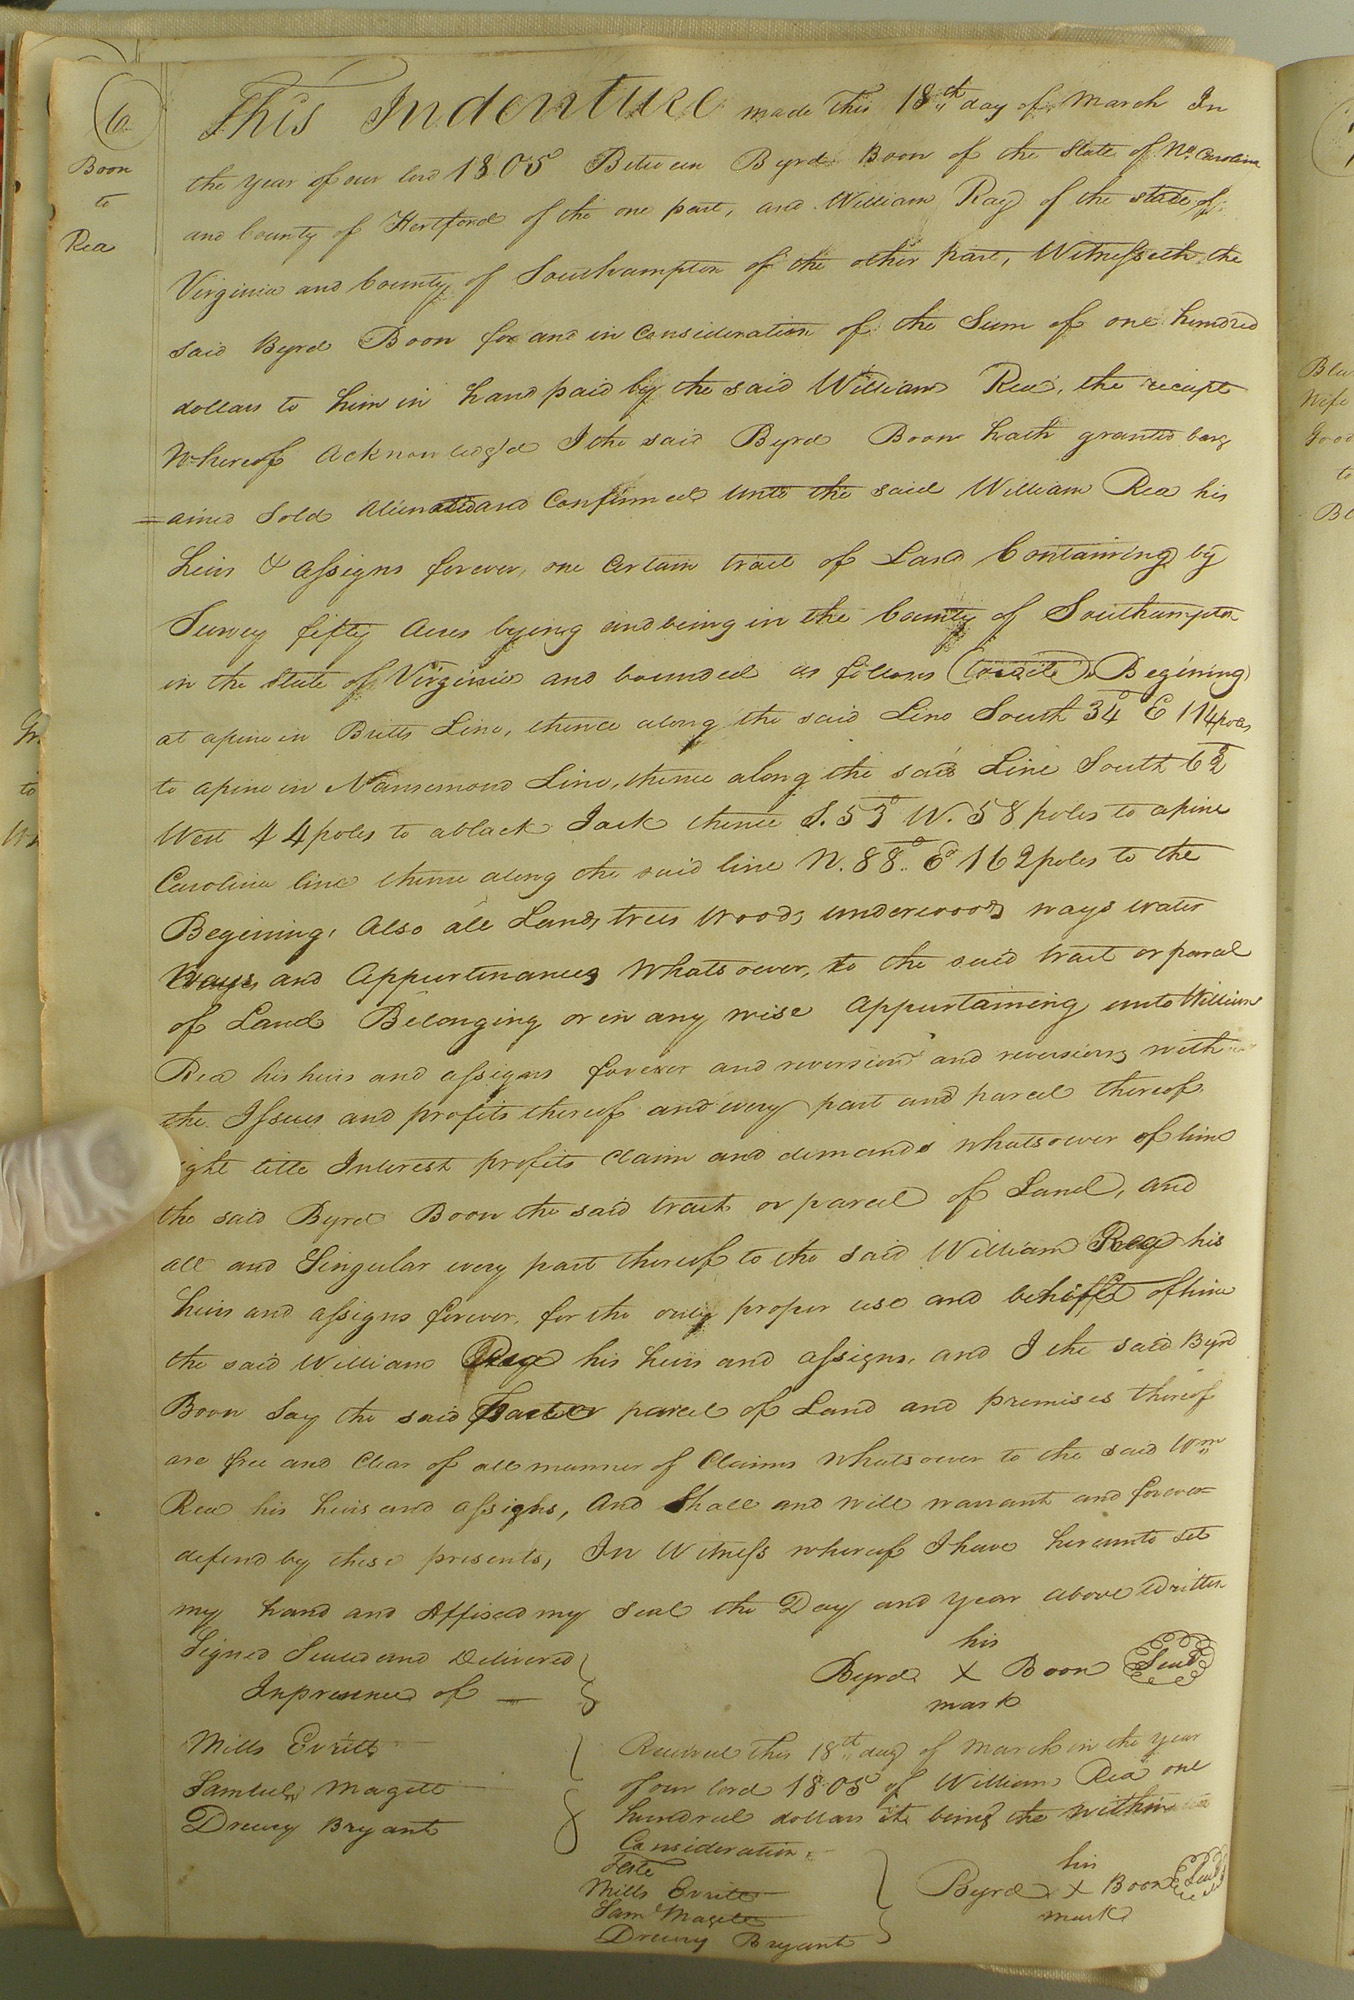 6
Boon
to
Rea
This Indenture made this 18th day of March In
the year of our lord 1805 Between Byrd Boon of the State of No. Carolina
and County of Hertford of the one part, and William Ray of the state of
Virginia and County of Southampton of the other part, Witnesseth the
said Byrd Boon for and in Consideration of the Sum of one hundred
dollars to him in hand paid by the said William Rea, the receipt
Whereof Acknowledg'd I the said Byrd Boon hath granted barg
=ained Sold Alienated and Confirmed Unto the said William Rea his
heirs & assigns forever, one Certain tract of Land Containing by
Survey fifty Acres lying and being in the County of Southampton
in the State of Virginia and bounded as follows (towit) Begining
at a pine in Britts Line, thence along the said Line South 34° E 114 poles
to a pine in Nansemond Line, thence along the said Line South 62
West 44 poles to a black Jack thence S. 53° W. 58 poles to a pine
Carolina line thence along the said line N. 88° E° 162 poles to the
Begining, Also all Lands, trees Woods, underwoods ways water
Ways and Appurtenances Whatsoever, to the said tract or parcel
of Land Belonging or in any wise Appurtaining unto William
Rea his heirs and assigns forever and reversion and reversions with
the Issues and profits thereof and every part and parcel thereof
ight title Interest profits Claim and demands whatsoever of him
the said Byrd Boon the said tract or parcel of Land, and
all and Singular every part thereof to the said William Rea his
heirs and assigns forever, for the only proper use and behoff of him
the said William Rea his heirs and assigns, and I the said Byrd
Boon Say the said Tract or parcel of Land and premises thereof
are free and Clear of all manner of Claims Whatsoever to the said Wm
Rea his heirs and assighs, And Shall and will warrant and forever
defend by these presents, In Witness whereof I have hereunto Set
my hand and Affixed my Seal the Day and year above Written
Signed Sealed and Delivered
In presence of
his
Byrd X Boon Seal
mark
Mills Evritt
Samuel Magett
Drewry Bryant
Received this 18th day of March in the year
of our lord 1805 of William Rea one
hundred dollars it being the within
Consideration
Teste
Mills Evritt
Saml Magett
Drewry Bryant
his
Byrd X Boon Seal
mark
Wife
Good
to